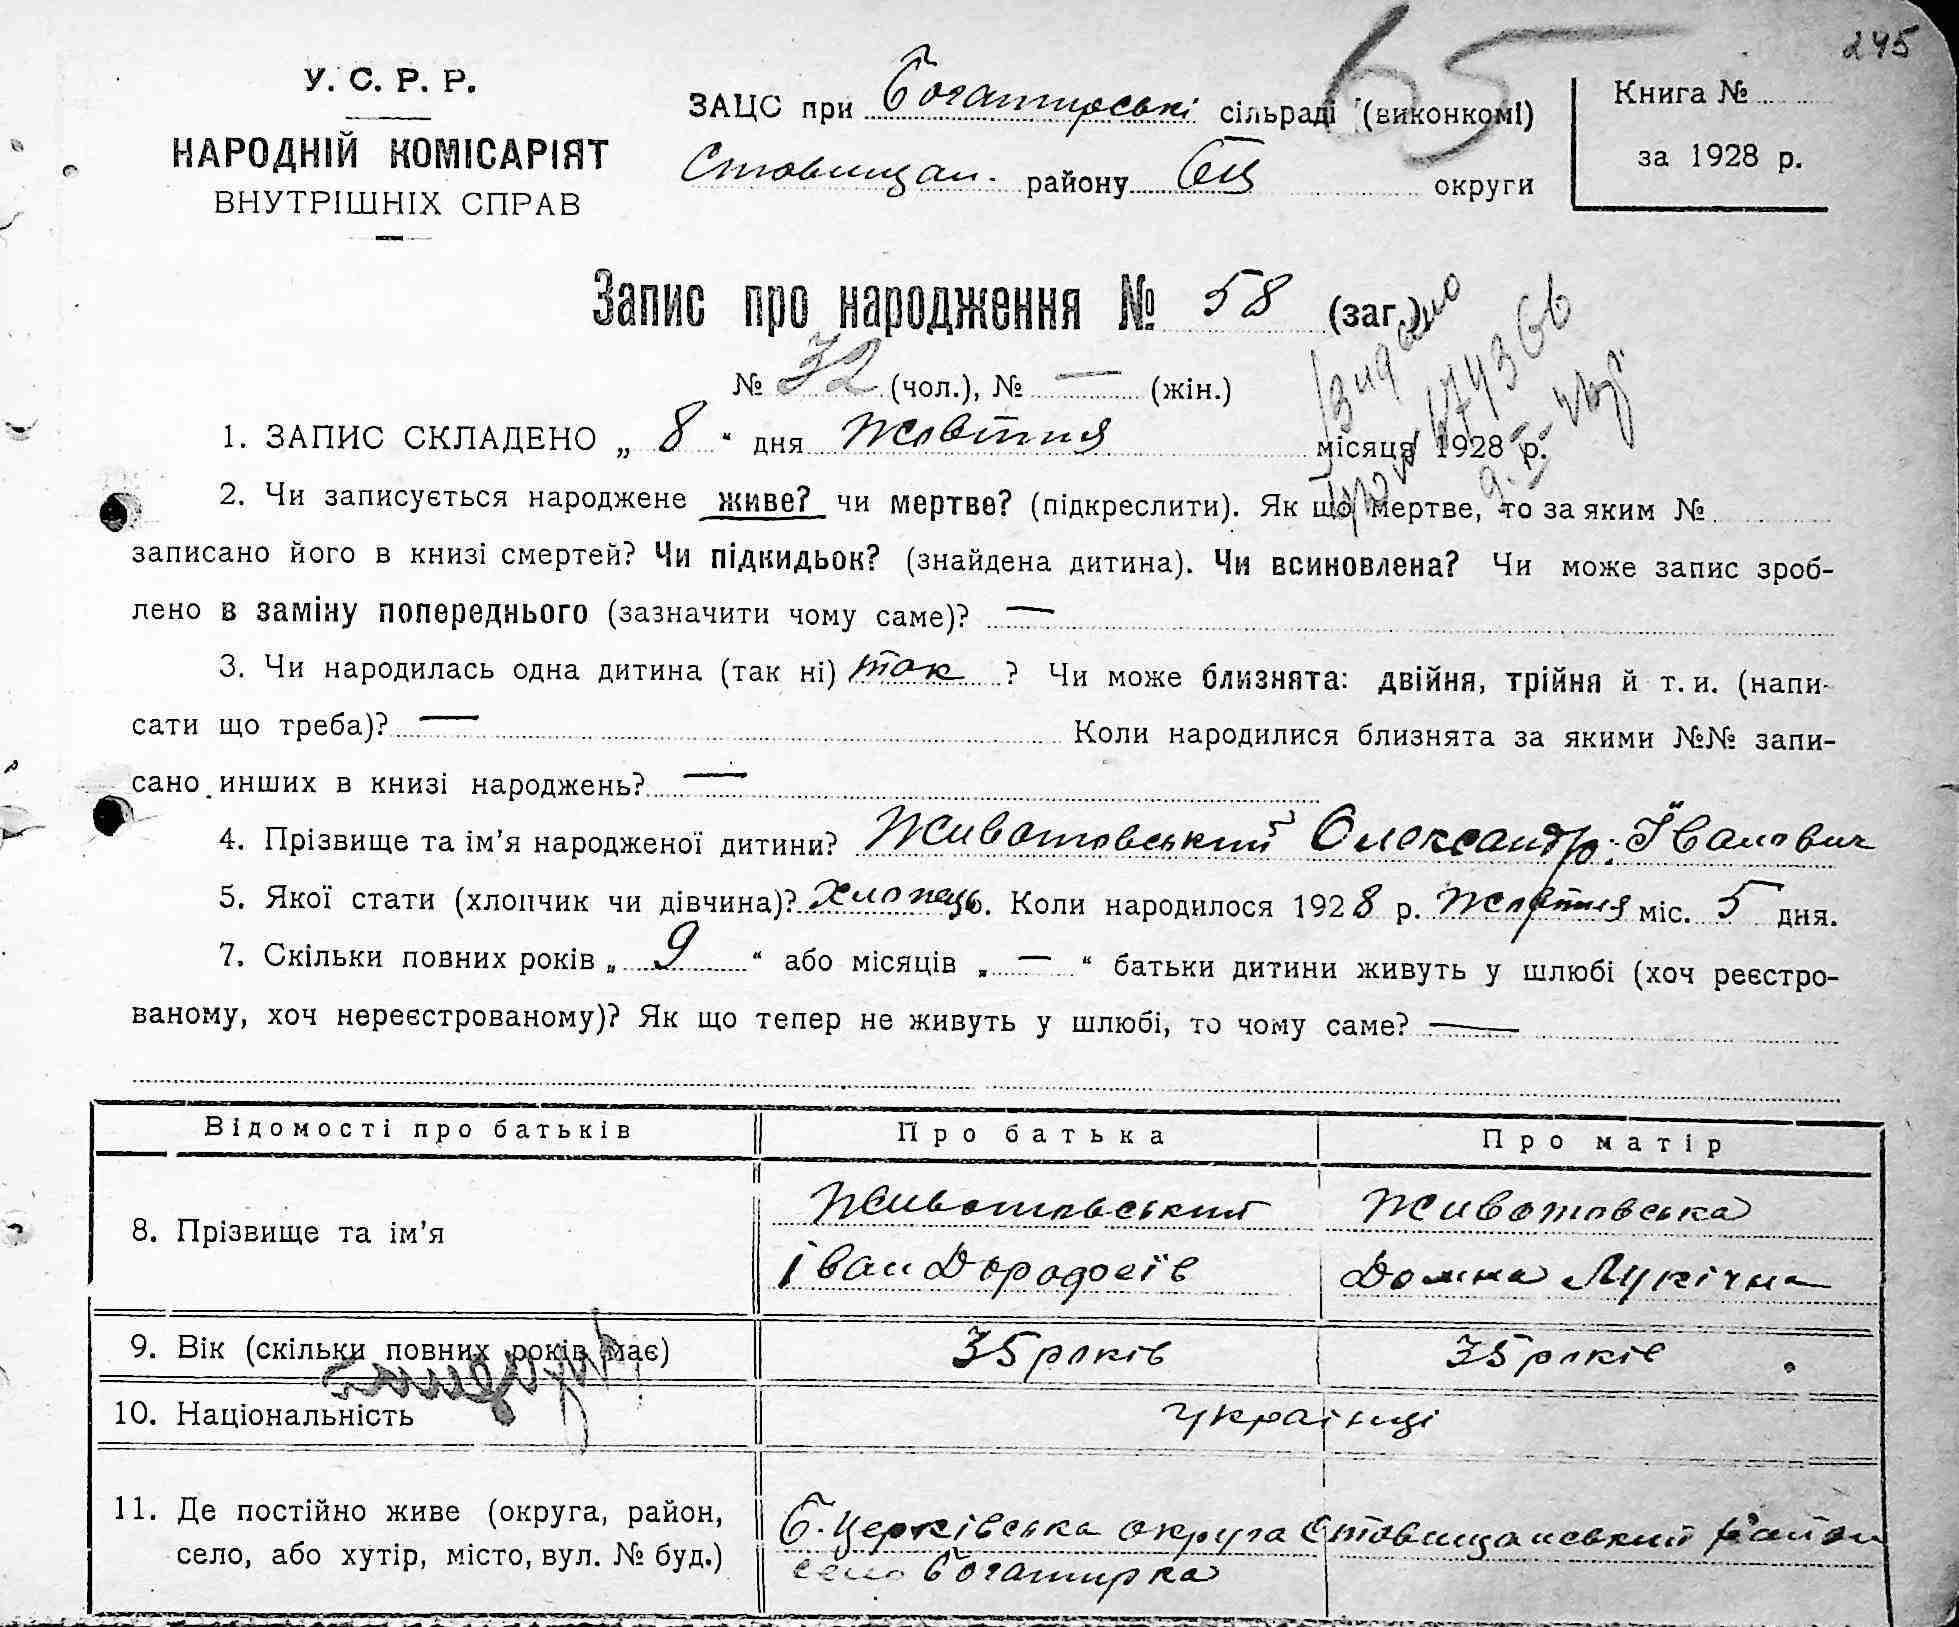 245
65
У. С. Р. Р.
НАРОДНІЙ КОМІСАРІЯТ
ВНУТРІШНІХ СПРАВ
ЗАЦС при Богатирські сільраді (виконкомі)
Стовищан. району БЦ округи
Книга №
за 1928 р.
Запис про народження № 58 (заг.)
№ 32 (чол.), № — (жін.)
Видано
1. ЗАПИС СКЛАДЕНО „ 8 “ дня Жовтня місяця 1928 р.
2. Чи записується народжене живе? чи мертве? (підкреслити). Як що мертве, то за яким №
записано його в книзі смертей? Чи підкидьок? (знайдена дитина). Чи всиновлена? Чи може запис зроб-
лено в заміну попереднього (зазначити чому саме)? —
3. Чи народилась одна дитина (так ні) так ? Чи може близнята: двійня, трійня й т. и. (напи-
сати що треба)? — Коли народилися близнята за якими №№ запи-
сано инших в книзі народжень? —
4. Прізвище та ім’я народженої дитини? Животовський Олександр Іванович
5. Якої стати (хлопчик чи дівчина)? Хлопець. Коли народилося 1928 р. Жовтня міс. 5 дня.
7. Скільки повних років „ 9 “ або місяців „ — “ батьки дитини живуть у шлюбі (хоч реєстро-
ваному, хоч нереєстрованому)? Як що тепер не живуть у шлюбі, то чому саме? —
Відомості про батьків Про батька Про матір
8. Прізвище та ім’я
Животовський Животовська
Іван Дорофеїв Домна Лукічна
9. Вік (скільки повних років має) 35 років 35 років
10. Національність українці
11. Де постійно живе (округа, район,
село, або хутір, місто, вул. № буд.)
Б. Церківська округа Стовищанський район
село Богатирка